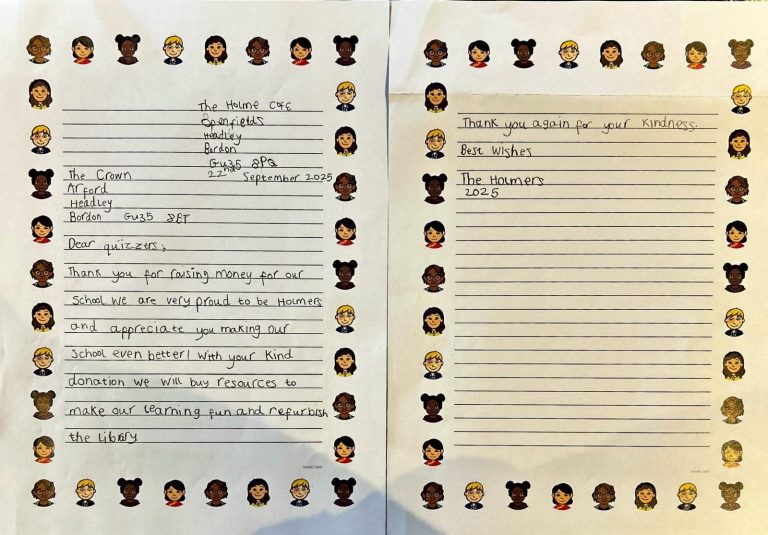 The Holme CofE
Openfields
Headley
Bordon
Gu35 8PQ
22nd September 2025
The Crown
Arford
Headley
Bordon Gu35 8BT
Dear quizzers,
Thank you for raising money for our
School. We are very proud to be Holmers
and appreciate you making our
School even better! With your Kind
donation we will buy resources to
make our learning fun and refurbish
the library
Thank you again for your Kindness.
Best Wishes
The Holmers
2025